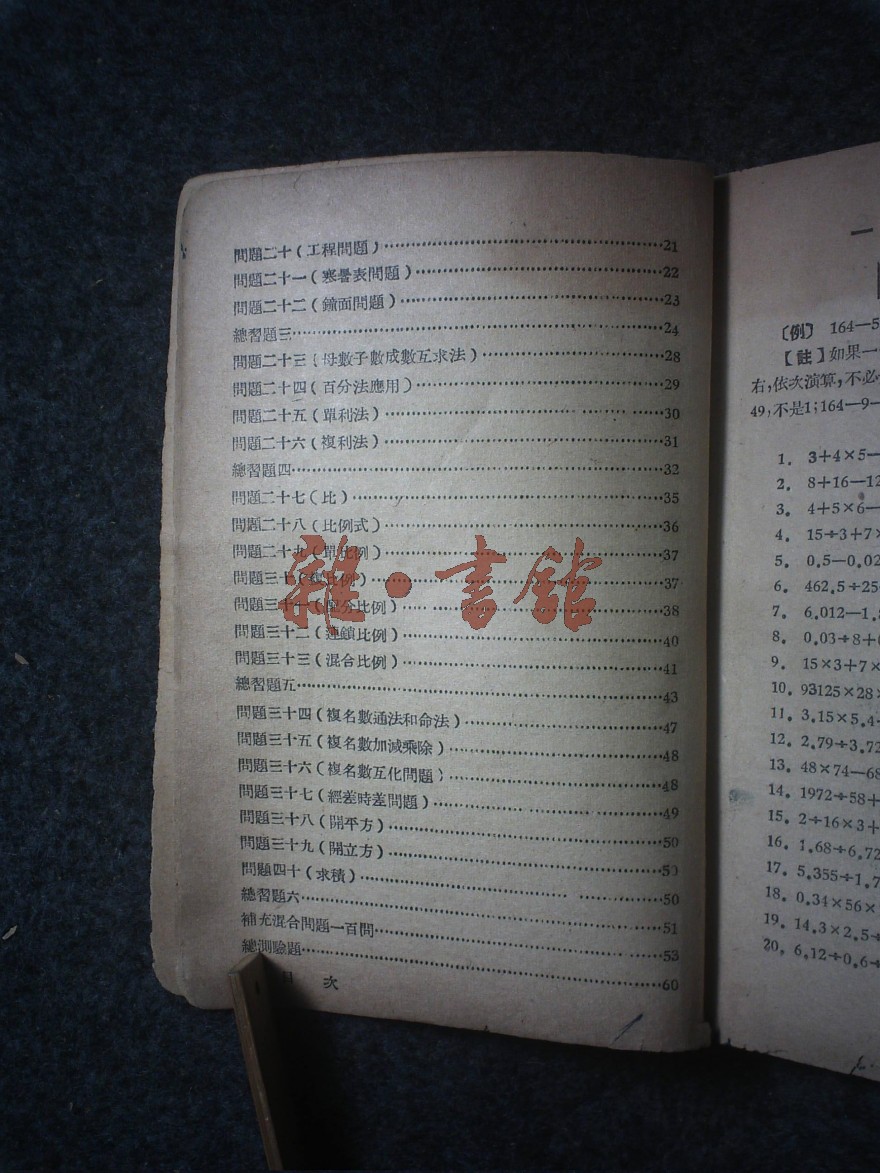 問題二十(工程問題)……………………21
問題二十一(寒暑表問題)……………………22
問題二十二(鐘面問題)……………………23
總習題三……………………24
問題二十三(母數子數成數互求法)……………………28
問題二十四(百分法應用)……………………29
問題二十五(單利法)……………………30
問題二十六(複利法)……………………31
總習題四……………………32
問題二十七(比)……………………35
問題二十八(比例式)……………………36
問題二十九(單比例)……………………37
問題三十(複比例)……………………37
問題三十一(配分比例)……………………38
問題三十二(連鎖比例)……………………40
問題三十三(混合比例)……………………41
總習題五……………………43
問題三十四(複名數通法和命法)……………………47
問題三十五(複名數加減乘除)……………………48
問題三十六(複名數互化問題)……………………48
問題三十七(經差時差問題)……………………49
問題三十八(開平方)……………………50
問題三十九(開立方)……………………50
問題四十(求積)……………………50
總習題六……………………51
補充混合問題一百問……………………53
總測驗題……………………60
目 次
雜·書館
一
〔例〕 164—5
【註】如果一
右,依次演算,不必
49,不是1;164—9—
1. 3+4×5—
2. 8+16—12
3. 4+5×6—
4. 15÷3+7×
5. 0.5—0.02
6. 462.5÷25
7. 6.012—1.8
8. 0.03÷8+
9. 15×3+7×
10. 93125×28×
11. 3.15×5.4
12. 2.79÷3.72
13. 48×74—68
14. 1972÷58+
15. 2÷16×3+
16. 1.68÷6.72
17. 5.355÷1.7
18. 0.34×56×
19. 14.3×2.5÷
20. 6.12÷0.6÷